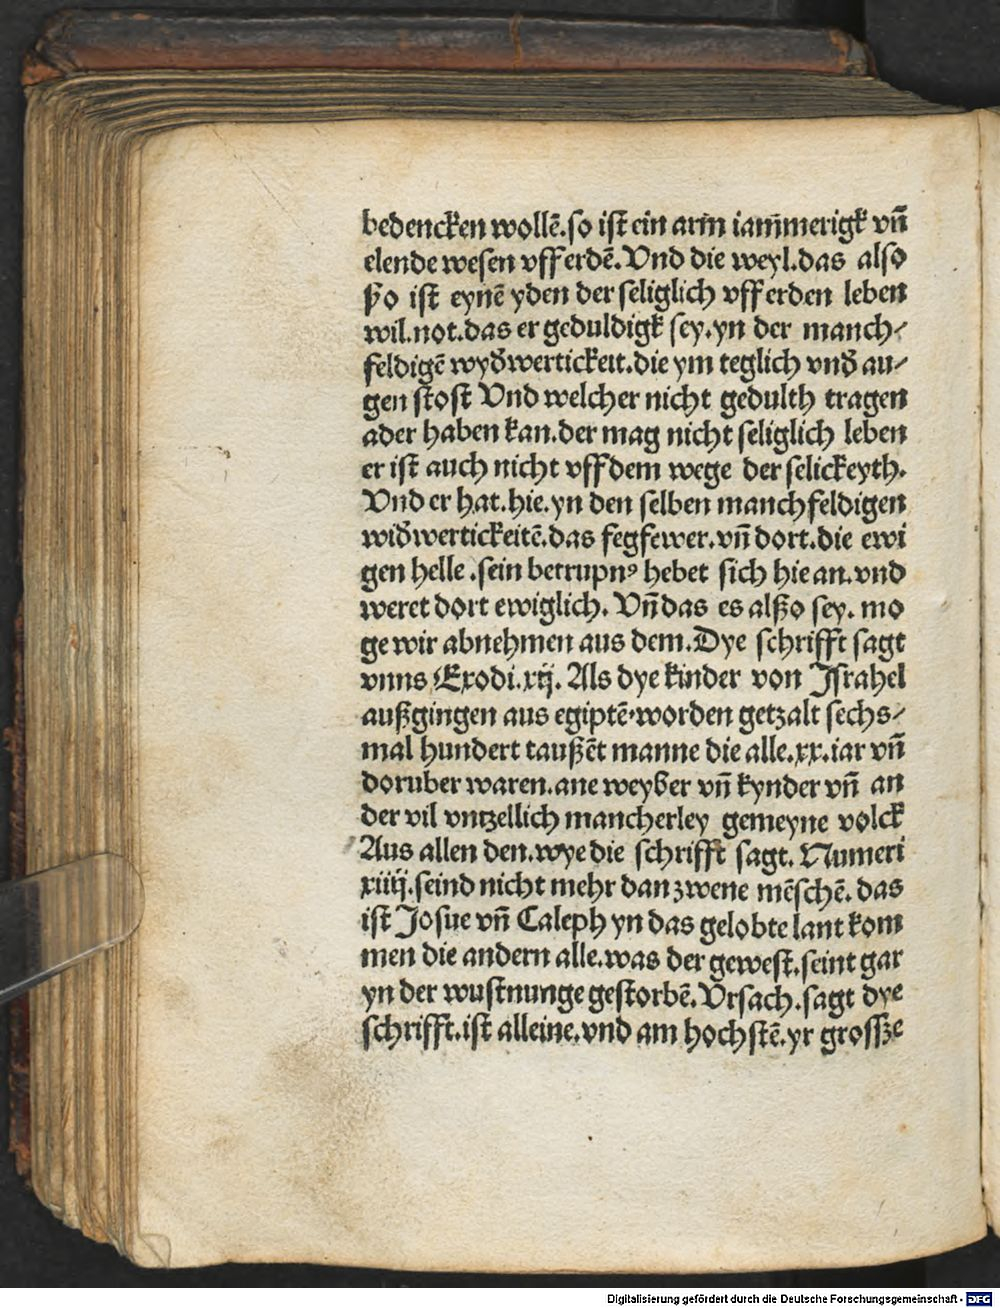 bedencken wollē.so ist ein arm̄ iam̄merigk vn̄
elende wesen vff erdē. Vnd die weyl.das also
ßo ist eynē yden der seliglich vff erden leben
wil.not.das er geduldigk sey.yn der manch⸗
feldigē wyd̕wertickeit.die ym teglich vnd̕ au⸗
gen stost Vnd welcher nicht gedulth tragen
ader haben kan.der mag nicht seliglich leben
er ist auch nicht vff dem wege der selickeyth.
Vnd er hat.hie.yn den selben manchfeldigen
wid̕wertickeitē.das fegfewer.vn̄ dort.die ewi
gen helle.sein betrupnꝰ hebet sich hie an.vnd
weret dort ewiglich. Vn̄ das es alßo sey. mo
ge wir abnehmen aus dem. Dye schrifft sagt
vnns Exodi.xij. Als dye kinder von Jsrahel
außgingen aus egiptē.worden getzalt sechs⸗
mal hundert taußēt manne die alle.xx.iar vn̄
doruber waren.ane weyber vn̄ kynder vn̄ an
der vil vntzellich mancherley gemeyne volck
Aus allen den.wye die schrifft sagt. Numeri
xiiij.seind nicht mehr dan zwene mēschē. das
ist Josue vn̄ Caleph yn das gelobte lant kom
men die andern alle.was der gewest.seint gar
yn der wustnunge gestorbē. Vrsach.sagt dye
schrifft.ist alleine.vnd am hochstē.yr grossze
Digitalisierung gefördert durch die Deutsche Forschungsgemeinschaft - DFG